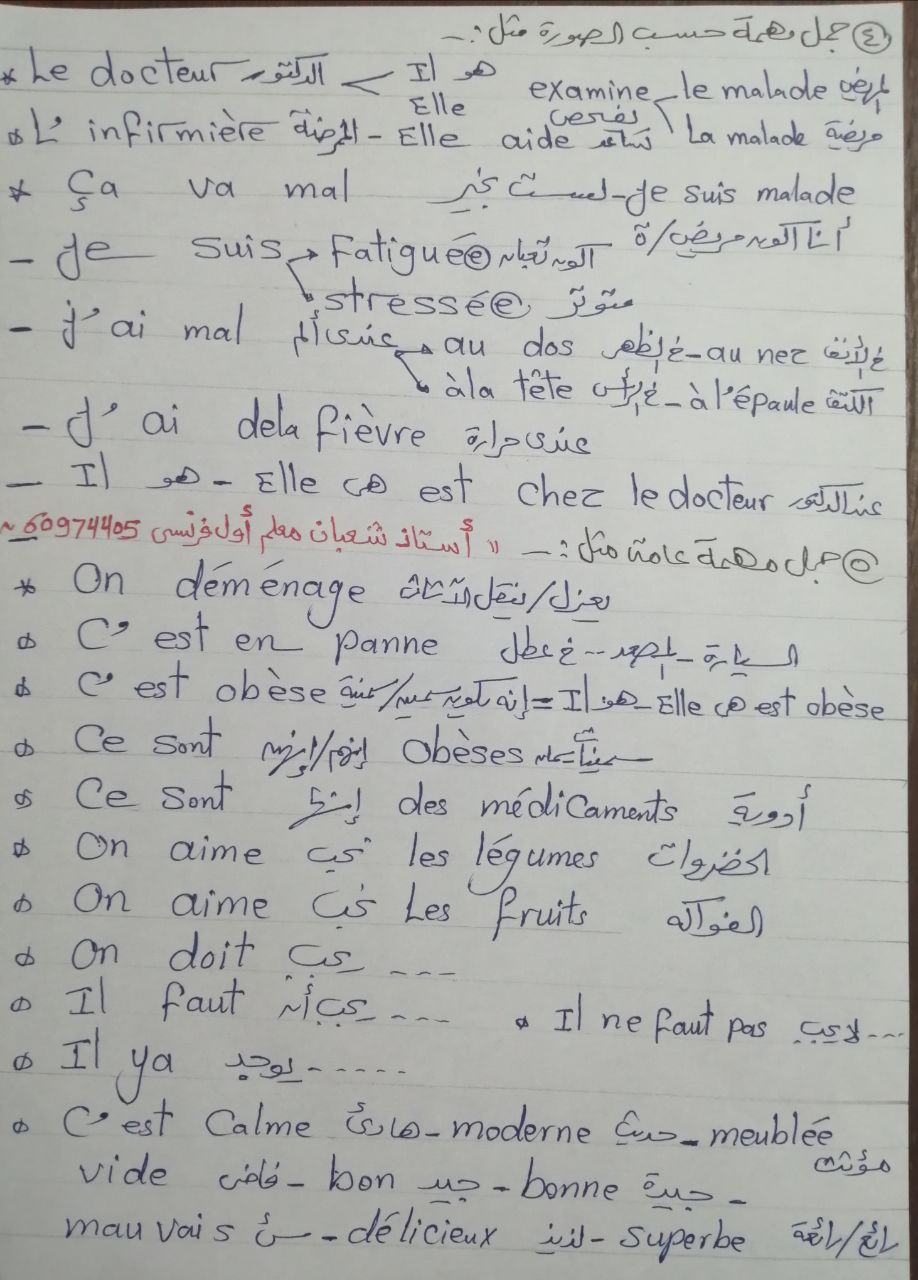 ④ جمل مهمة حسب الصورة مثل :-
* Le docteur الدكتور < Il هو Elle examine يفحص le malade المريض
* L'infirmière الممرضة - Elle aide تساعد La malade مريضة
* Ça va mal لست بخير - Je suis malade أنا أكون مريض/ة
- Je suis fatiguée أكون تعبان
stressée متوتر
- J'ai mal عندى ألم au dos فى الظهر - au nez فى الأنف
à la tête فى الرأس - à l'épaule الكتف
- J'ai dela fièvre عندى حرارة
- Il هو - Elle هى est chez le docteur عند الدكتور
⑤ جمل مهمة عامة مثل :- " أستاذ شعبان معلم أول فرنسى 60974405 ~
* On déménage يعزل/ينقل الأثاث
* C'est en panne السيارة - المصعد -- فى عطل
* C'est obèse إنه يكون سمين/سمينة = Il هو - Elle هى est obèse
* Ce sont إنهم/إنهن obèses
* Ce sont إنها des médicaments أدوية
* On aime نحب les légumes الخضروات
* On aime نحب Les fruits الفواكه
* On doit يجب ---
* Il faut يجب أن --- * Il ne faut pas لا يجب ---
* Il ya يوجد -----
* C'est Calme هادئ - moderne حديث - meublée مؤثث
vide فاضى - bon جيد - bonne جيدة -
mauvais سئ - délicieux لذيذ - superbe رائع/رائعة